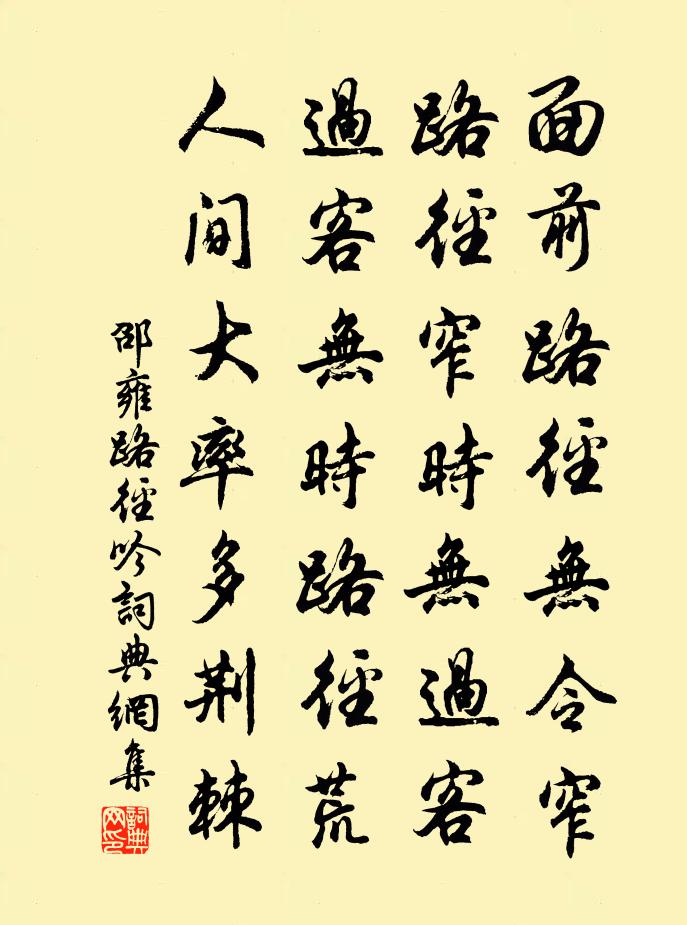 面前路徑無令窄
路徑窄時無過客
過客無時路徑荒
人间大率多荆棘
邵雍路徑吟詞典網集
詞典网印